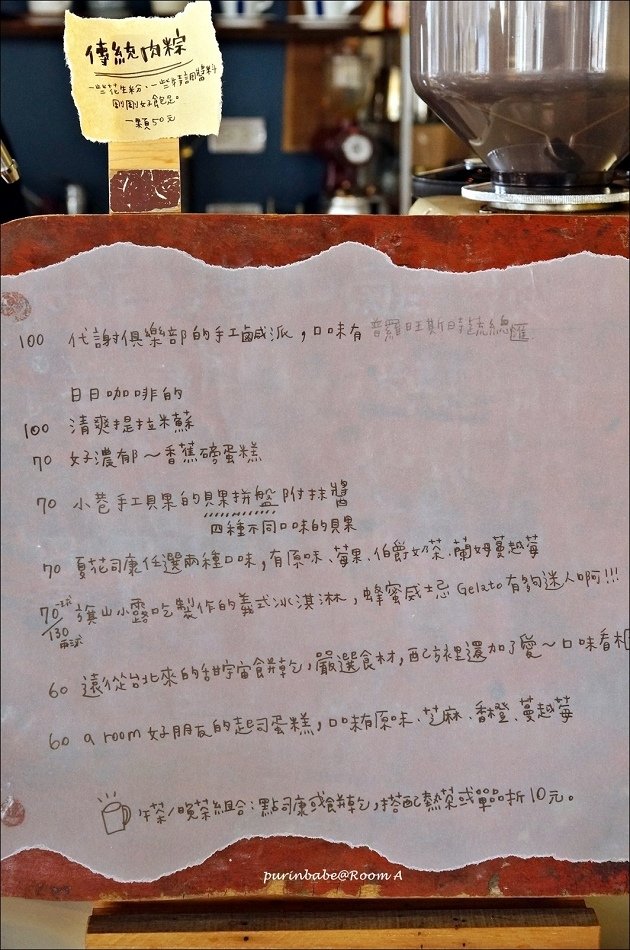 傳統肉粽
一些花生粉、一些特調醬料
剛剛好飽足。
一顆50元
100 代謝俱樂部的手工鹹派，口味有 普羅旺斯時蔬總匯
日日咖啡的
100 清爽提拉米蘇
70 好濃郁～香蕉磅蛋糕
70 小巷手工貝果的貝果拼盤 附抹醬
四種不同口味的貝果
70 夏花司康任選兩種口味，有原味、莓果、伯爵奶茶、蘭姆蔓越莓
70一球/130兩球 旗山小露吃製作的義式冰淇淋，蜂蜜威士忌 Gelato 有夠迷人啊!!!
60 遠從台北來的甜宇宙餅乾，嚴選食材，配方裡還加了愛～口味看
60 a room 好朋友的起司蛋糕，口味有原味、芝麻、香橙、蔓越莓
午茶/晚茶組合：點司康或餅乾，搭配熱茶或單品折10元。
purinbabe@Room A